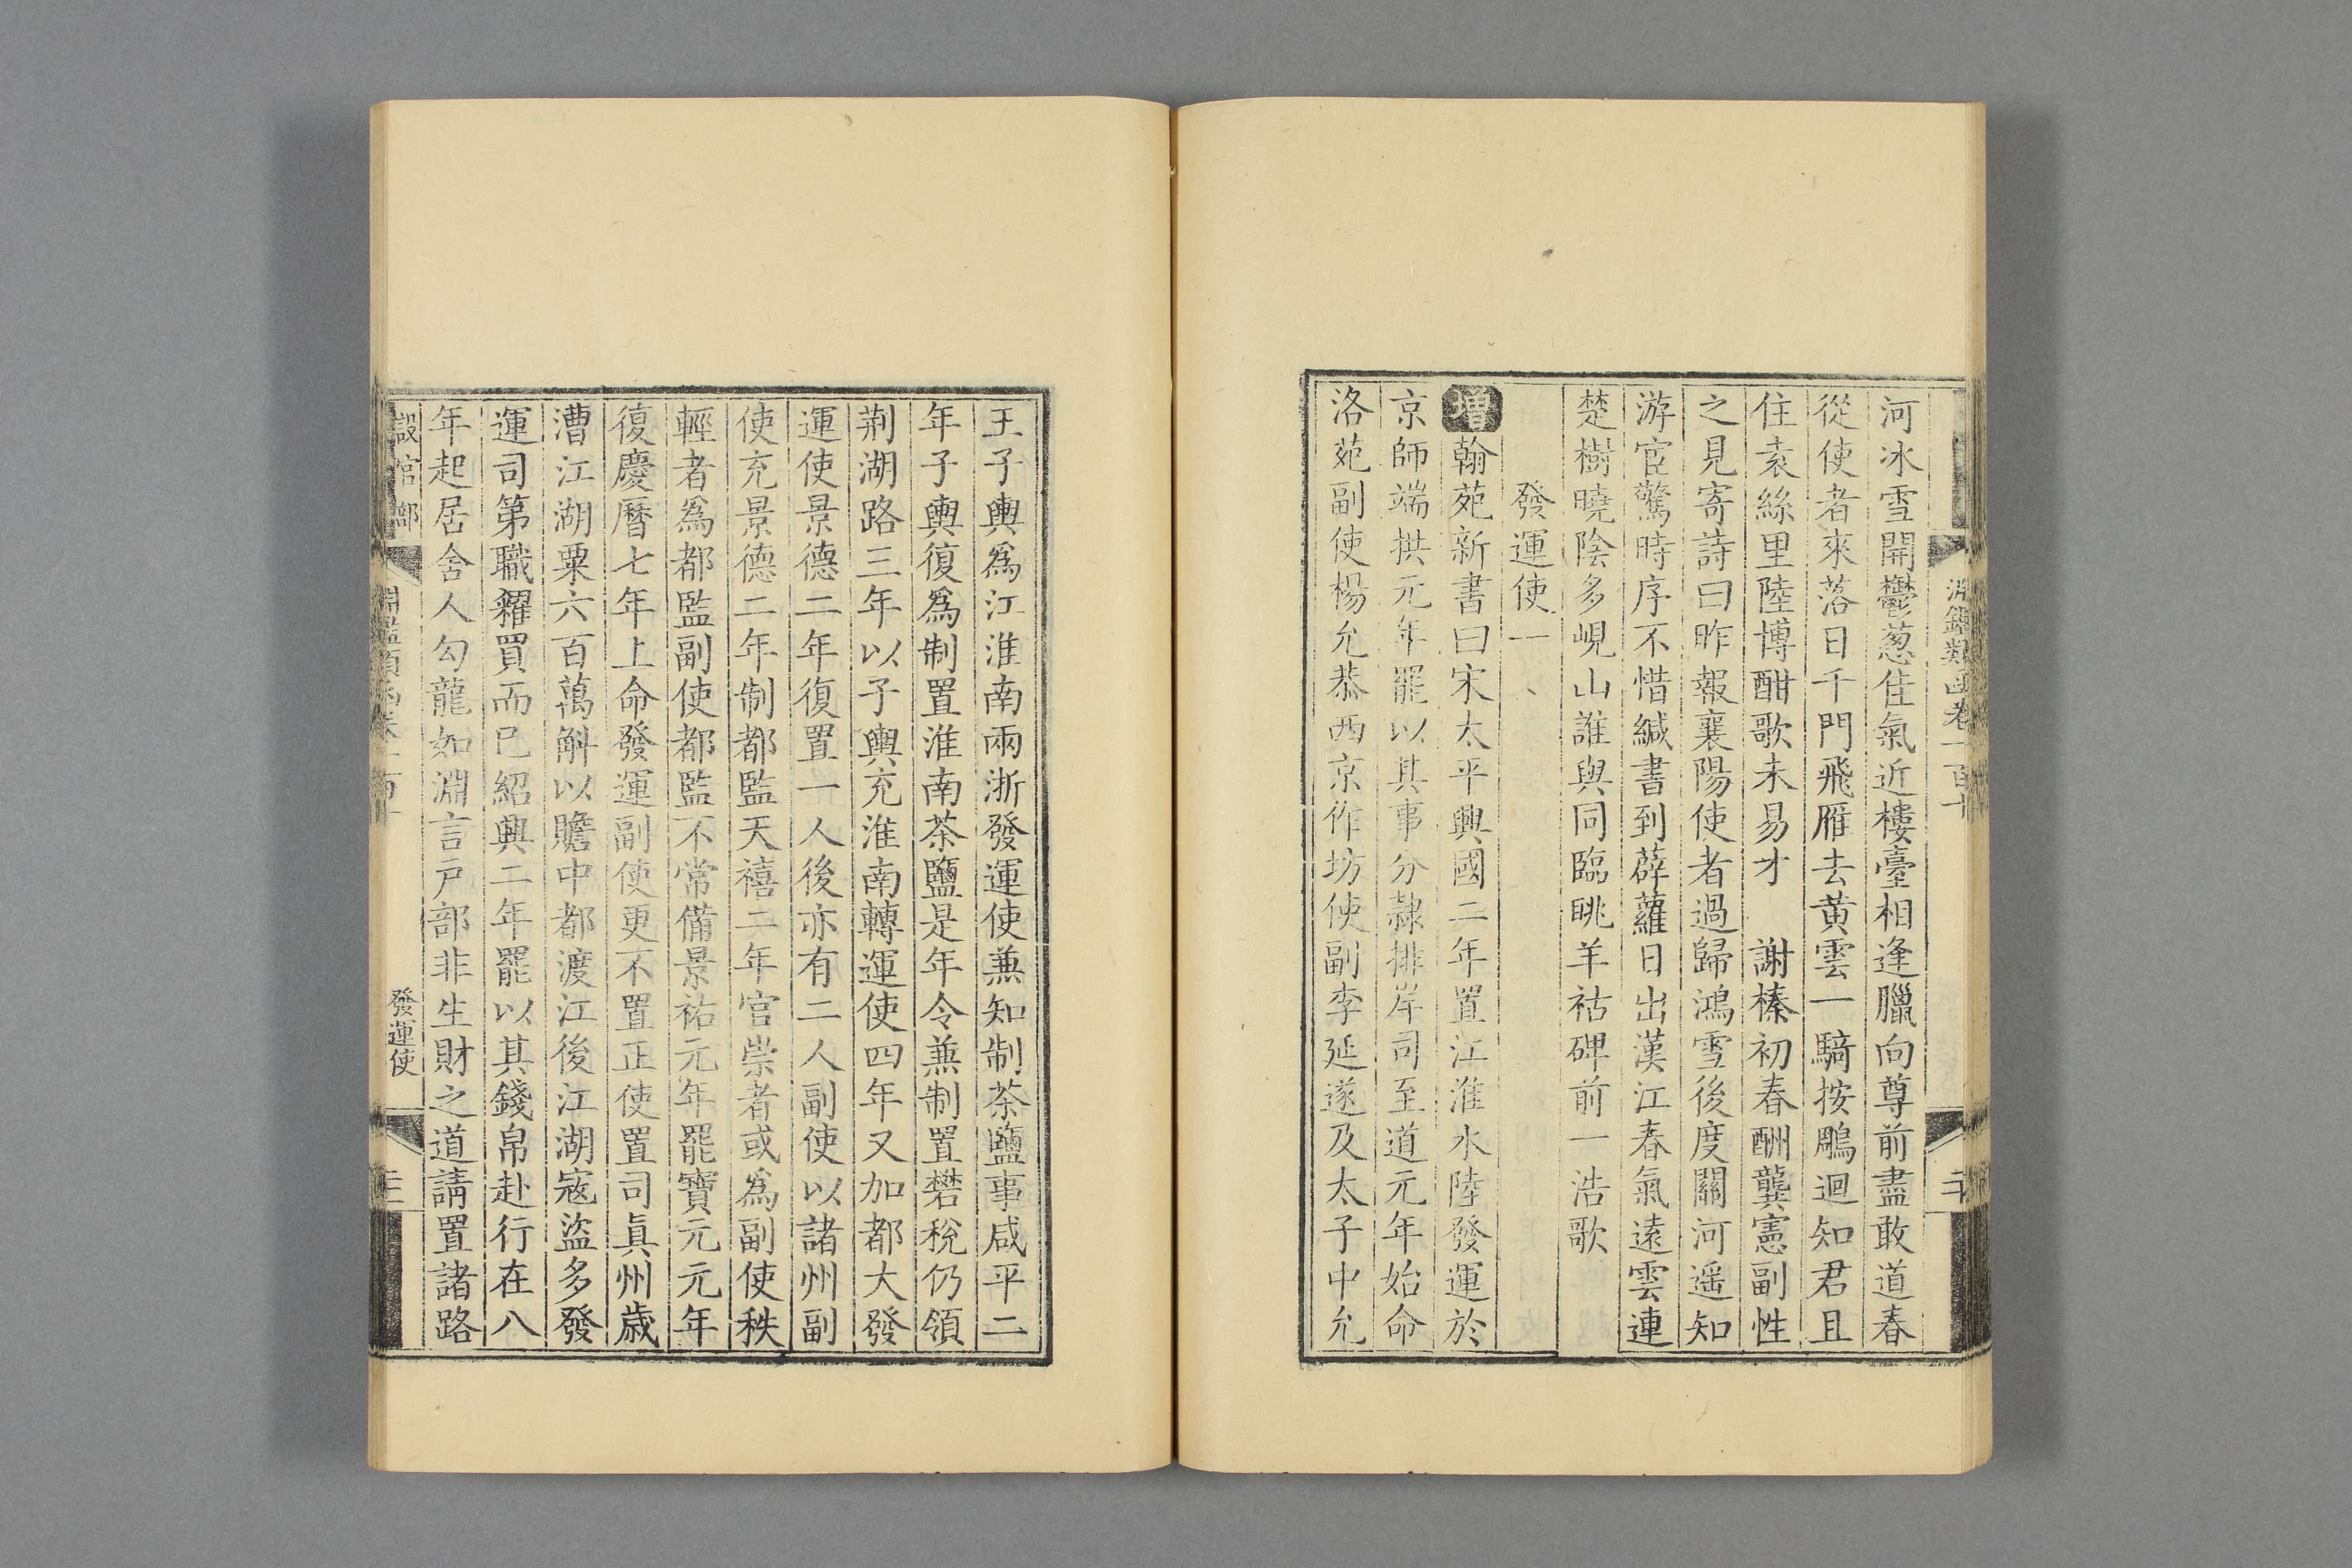 河冰雪開鬱蔥佳氣近樓臺相逢臘向尊前盡敢道春
從使者來落日千門飛雁去黄雲一騎按鵰迴知君且
住袁絲里陸博酣歌未易才　謝榛初春酬龔憲副性
之見寄詩曰昨報襄陽使者過歸鴻雪後度關河遥知
游宦驚時序不惜緘書到薜蘿日出漢江春氣遠雲連
楚樹曉陰多峴山誰與同臨眺羊祜碑前一浩歌
發運使一
增翰苑新書曰宋太平興國二年置江淮水陸發運於
京師端拱元年罷以其事分隸排岸司至道元年始命
洛苑副使楊允恭西京作坊使副李延遂及太子中允
王子輿爲江淮南兩浙發運使兼知制茶鹽事咸平二
年子輿復爲制置淮南茶鹽是年令兼制置礬稅仍領
荆湖路三年以子輿充淮南轉運使四年又加都大發
運使景德二年復置一人後亦有二人副使以諸州副
使充景德二年制都監天禧二年官崇者或爲副使秩
輕者爲都監副使都監不常備景祐元年罷寶元元年
復慶曆七年上命發運副使更不置正使置司眞州歲
漕江湖粟六百萬斛以贍中都渡江後江湖寇盜多發
運司第職糴買而已紹興二年罷以其錢帛赴行在八
年起居舍人勾龍如淵言戸部非生財之道請置諸路
設官部
淵鑑類函卷一百十
發運使